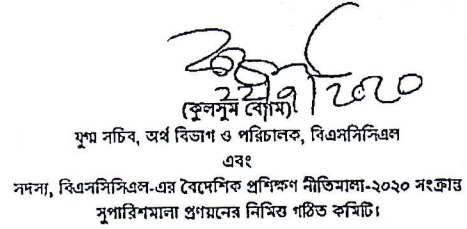 ২২/৭/২০২০
(কুলসুম বেগম)
যুগ্ম সচিব, অর্থ বিভাগ ও পরিচালক, বিএসসিসিএল
এবং
সদস্য, বিএসসিসিএল-এর বৈদেশিক প্রশিক্ষণ নীতিমালা-২০২০ সংক্রান্ত
সুপারিশমালা প্রণয়নের নিমিত্ত গঠিত কমিটি।